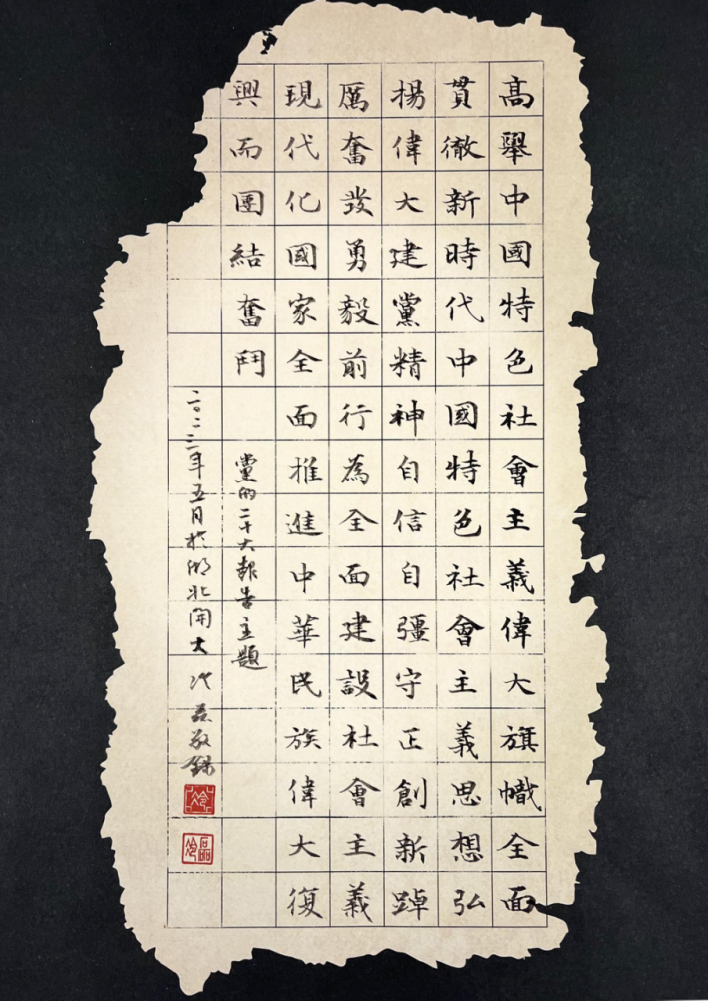 高舉中國特色社會主義偉大旗幟全面
貫徹新時代中國特色社會主義思想弘
揚偉大建黨精神自信自彊守正創新踔
厲奮發勇毅前行為全面建設社會主義
現代化國家全面推進中華民族偉大復
興而團結奮鬥
黨的二十大報告主題
二〇二三年五月於湖北開大